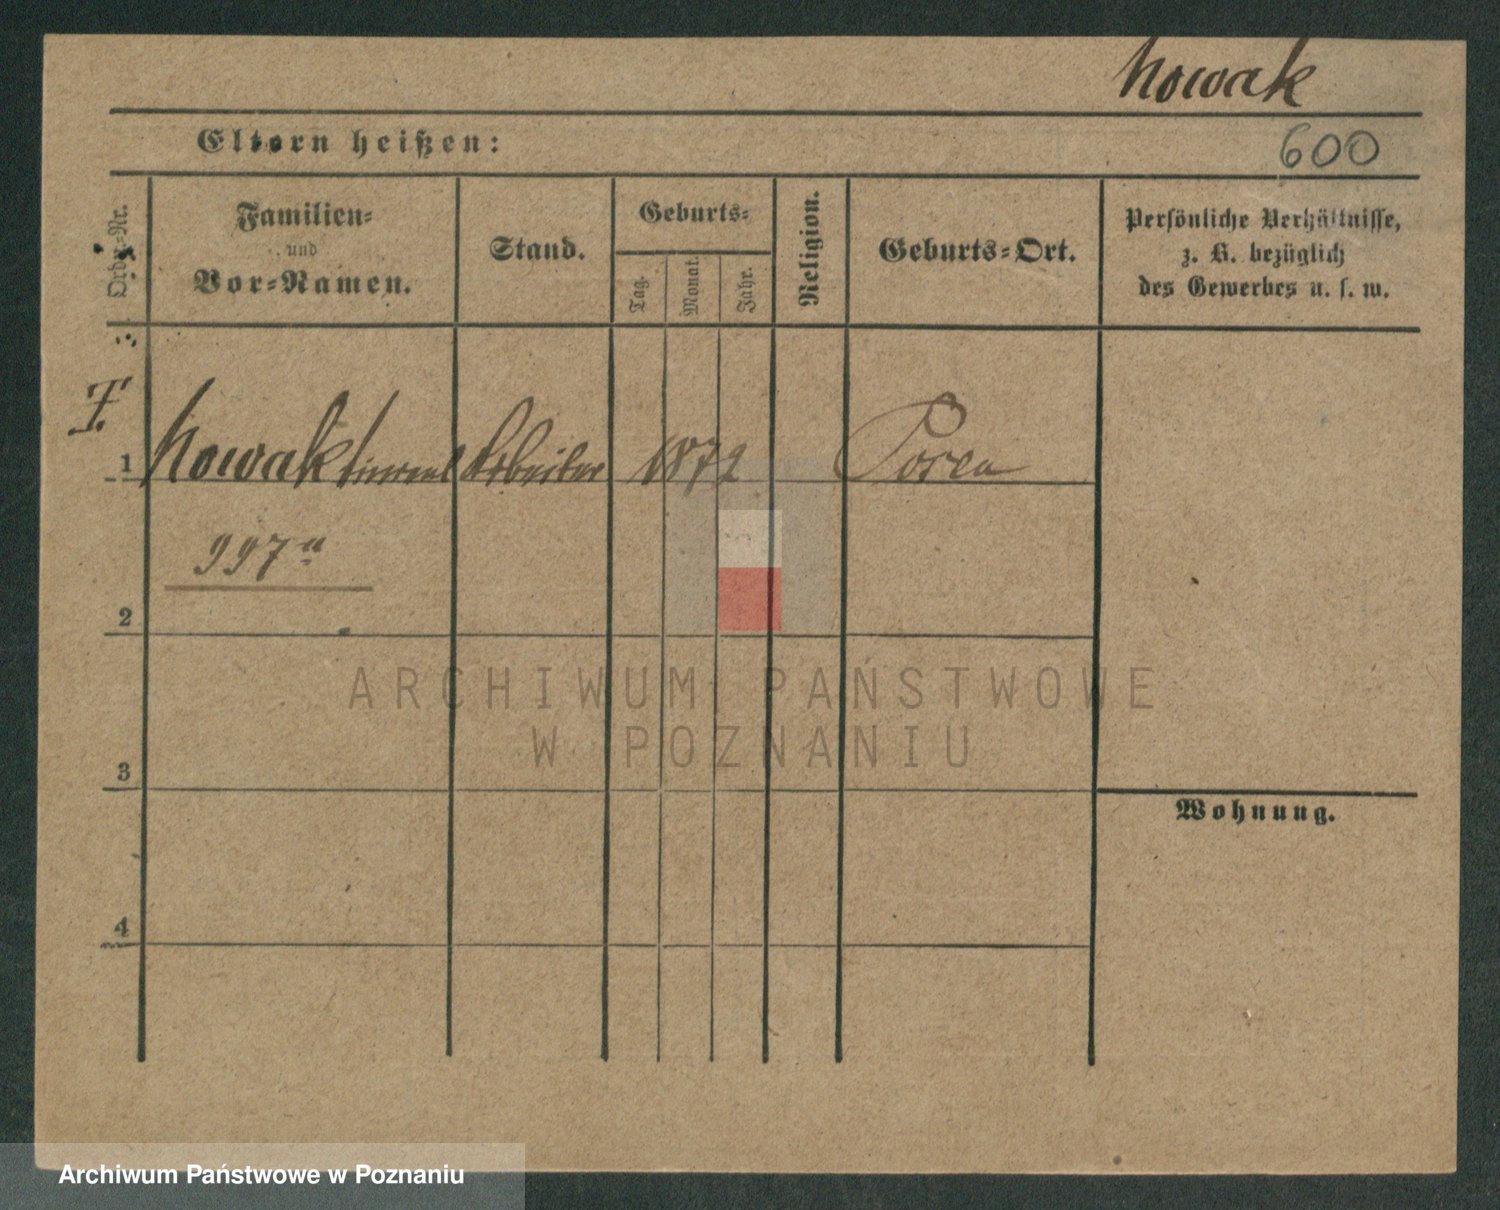 Nowak
Eltern heißen:
600
Ordn.-Nr.
Familien-
und
Vor-Namen.
Stand.
Geburts-
Tag.
Monat.
Jahr.
Religion.
Geburts-Ort.
Persönliche Verhältnisse,
z. B. bezüglich
des Gewerbes u. s. w.
1 Nowak Arbeiter 1872
997a
2
3
4
Wohnung.
ARCHIWUM PAŃSTWOWE
W POZNANIU
Archiwum Państwowe w Poznaniu